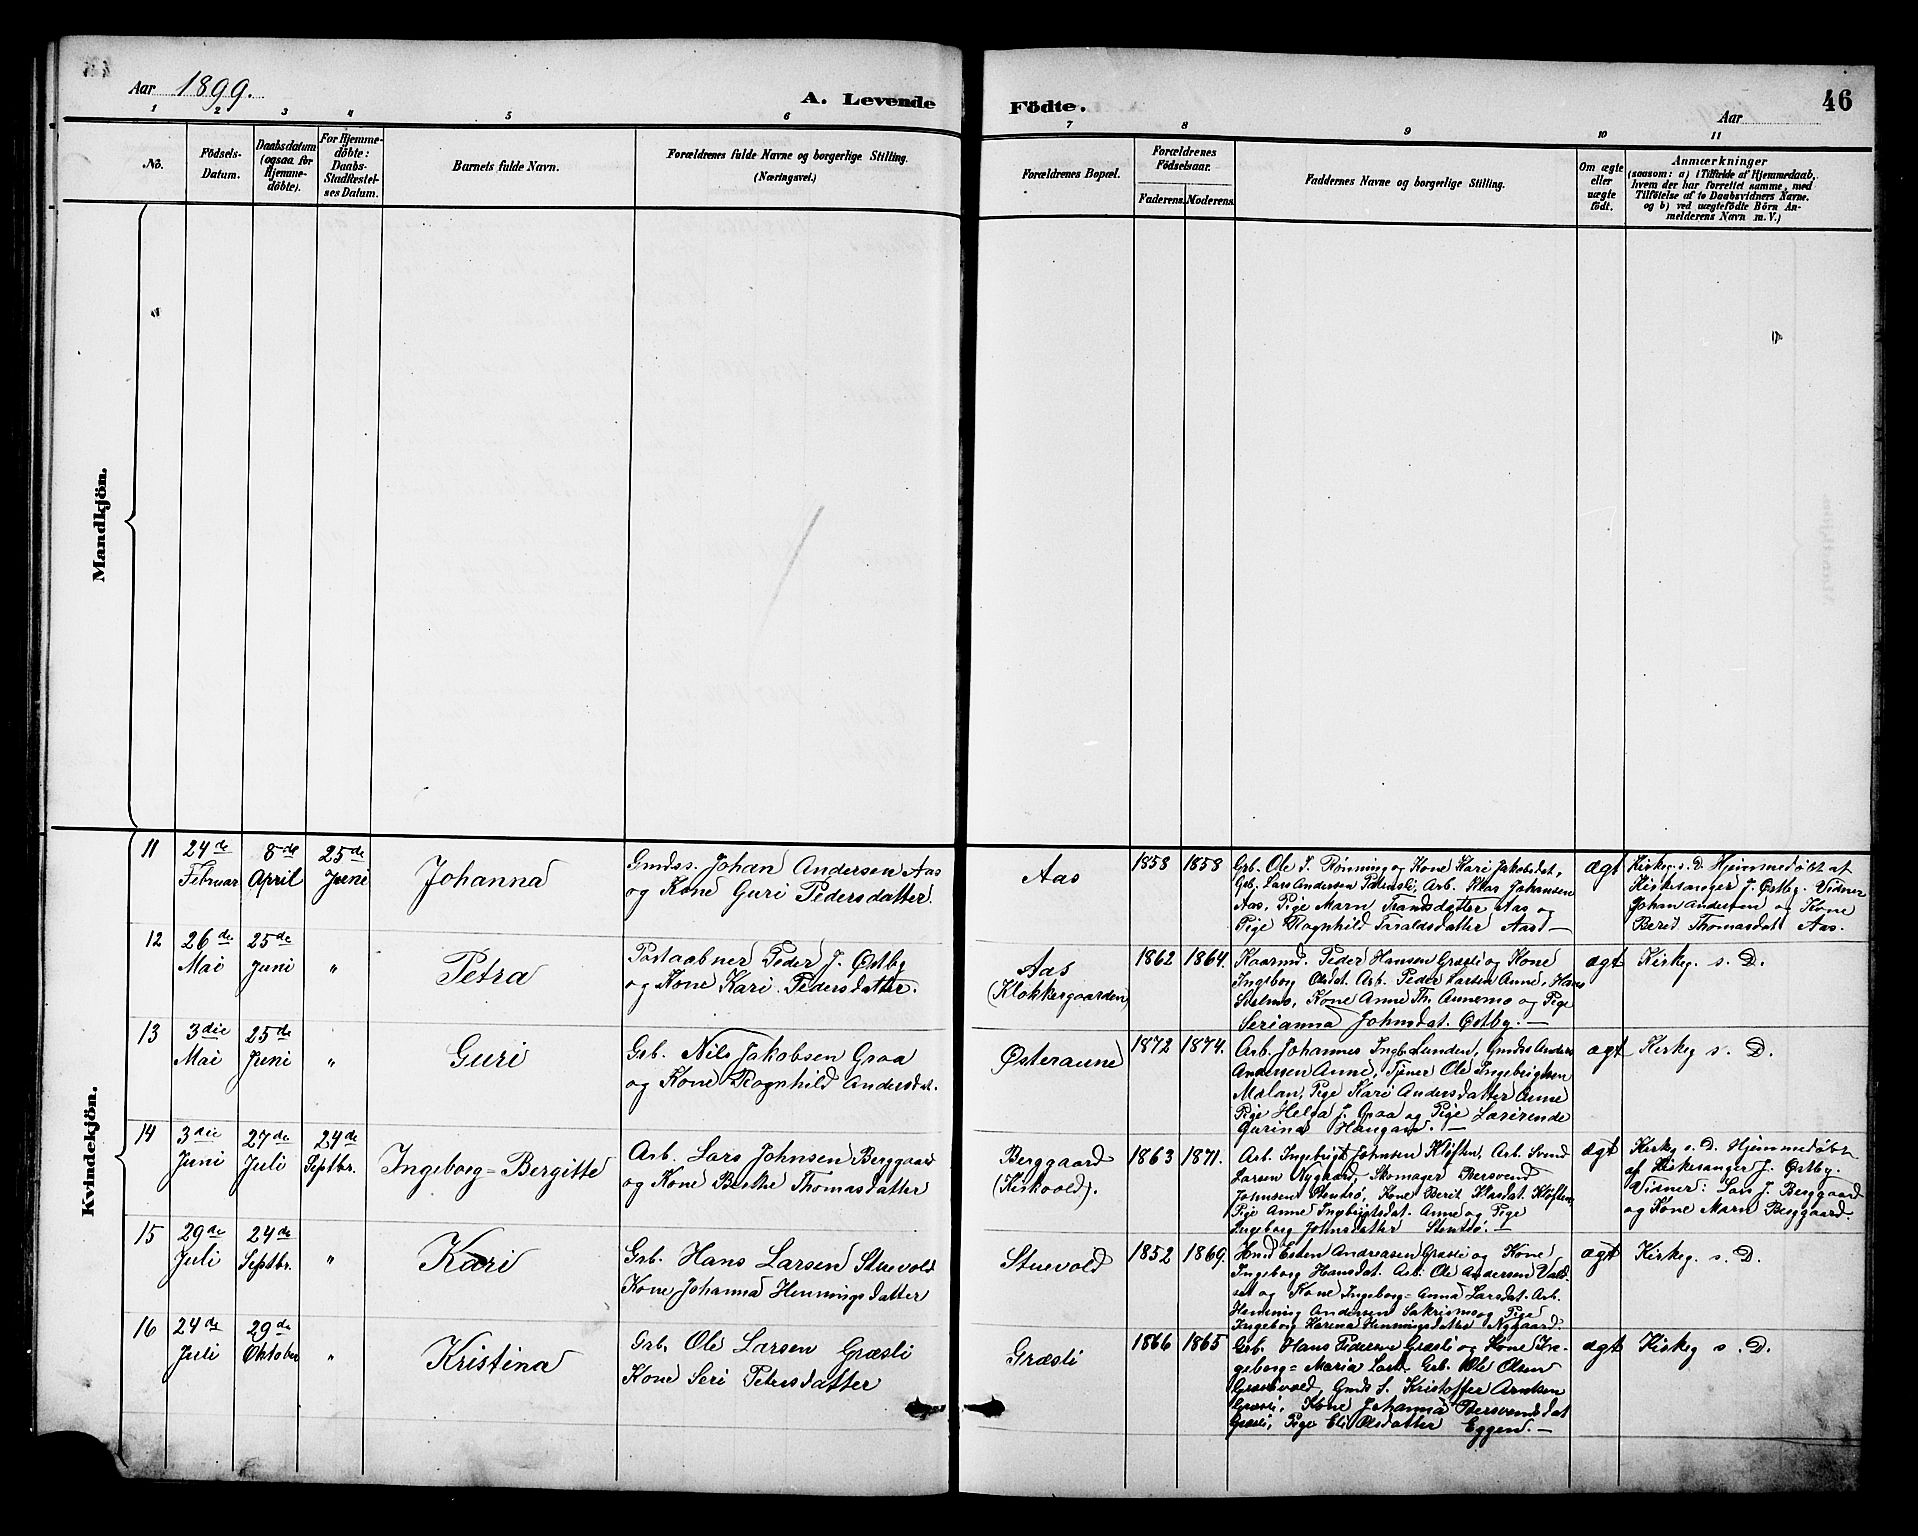 Aar 1899.
A. Levende
Födte.
Aar
46
1 2 3 4 5 6 7 8 9 10 11
No.
Födsels-
Datum.
Daabsdatum
(ogsaa for
Hjemme-
döbte).
For Hjemme-
döbte:
Daabs-
Stadfæstel-
ses Datum.
Barnets fulde Navn.
Forældrenes fulde Navne og borgerlige Stilling.
(Næringsvei.)
Forældrenes Bopæl.
Forældrenes
Födselsaar.
Faderens.
Moderens.
Faddernes Navne og borgerlige Stilling.
Om ægte
eller
uægte
födt.
Anmærkninger
(saasom: a) i Tilfælde af Hjemmedaab,
hvem der har forrettet samme, med
Tilföielse af to Daabsvidners Navne,
og b) ved uægtefödte Börn An-
melderens Navn m. V.)
Mandkjön.
Kvindekjön.
11
24de
Februar
8de
April
25de
Juni
Johanna
Gmds. Johan Andersen Aas
og Kone Guri Pedersdatter.
Aas
1858
1858
Grb. Ole J. Rønning og Kone Kari Jakobsdat,
Grb. Lars Andersen, Arb. Klas Johansen
Aas, Pige Marn Aas og
Pige Ragnhild Taraldsdatter Aas —
ægt
Kirkeg. s. D. Hjemmedøbt af
Kirkesanger J. Østby. Vidner
Johan Andersen og Kone
Berit Thomasdat Aas.
12
26de
Mai
25de
Juni
"
Petra
Postaabner Peder J. Østby
og Kone Kari Pedersdatter.
Aas
(Klokkergaarden)
1862
1864.
Kaarmd. Peder Hansen Græsli og Kone
Ingeborg Olsdt. Arb. Peder Larsen Aune, Hans
Kone Anne Th. Aunemo og Pige
Serianna Johnsdat. Østby. —
ægt
Kirkeg. s. D.
13
3die
Mai
25de
Juni
"
Guri
Grb. Nils Jakobsen Graa
og Kone Ragnhild Andersdat.
Østeraune
1872
1874.
Arb. Johannes Ingb. Lunden, Gmds Anders
Andersen Aune, Tjener Ole Ingebrigtsen
Moan, Pige Kari Andersdatter Aune
Pige Helga J. Graa og Pige
Gurina Haugan. —
ægt
Kirkeg s. D.
14
3die
Juni
27de
Juli
24de
Septbr.
Ingeborg=Bergitte
Arb. Lars Johnsen Berggaard
og Kone Berthe Thomasdatter
Berggaard
(Kirkvold).
1863
1871.
Arb. Ingebrigt Johnsen Kløften, Arb. Svend
Larsen Nygaard, Skomager Bersvend
Johnsen Stentrø, Kone Berit Klasdat. Kløften,
Pige Anne Ingbrigtsdat. Aune og Pige
Ingeborg Johnsdatter Stentrø.
ægt
Kirkeg s. D. Hjemmedøbt
af Kirkesanger J. Østby.
Vidner: Lars J. Berggaard
og Kone Marn Berggaard.
15
29de
Juli
24de
Septbr.
"
Kari
Grb. Hans Larsen Stuevold
Kone Johanna Henningsdatter
Stuevold
1852
1869.
Esten Andreasen Græsli og Kone
Ingeborg Hansdat. Arb. Ole Andersen Vald-
set og Kone Ingeborg=Anna Larsdat. Arb.
Henning Andersen og Pige
Ingeborg Karina Henningsdatter Nygaard.
ægt
Kirkeg. s. D.
16
24de
Juli
29de
Oktober
"
Kristina
Grb. Ole Larsen Græsli
Kone Seri Petersdatter
Græsli
1866
1865
Grb. Hans Pedersen Græsli og Kone In-
geborg=Maria Larsd. Grb. Ole Olsen
Græslivold, Gmds S. Kristoffer Arntsen
Græsli, Kone Johanna Bersvendsdat
Græsli, Pige Eli Olsdatter Eggen. —
ægt
Kirkeg s. D.